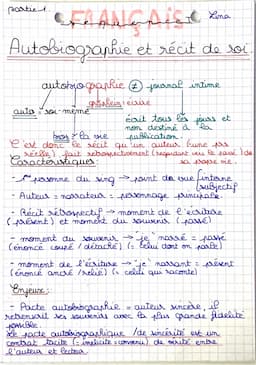 partie 1
FRANÇAIS
séquence 1
Lina
Autobiographie et récit de soi.
autobiographie ≠ journal intime
graphein = écrire
auto = soi-même
écrit tous les jours et
non destiné à la
bios = la vie publication.
C'est donc le récit qu'un auteur (une prs
réelle) fait rétrospectivement (regardant vers le passé) de
sa propre vie.
Caractéristiques :
- 1ère personne du sing → point de vue interne
(subjectif
- Auteur = narrateur = personnage principale.
- Récit rétrospectif → moment de l'écriture
(présent) et moment du souvenir (passé)
- moment du souvenir → "je" narré = passé
(énoncé coupé / détaché) (= celui dont on parle)
- moment de l'écriture → "je" narrant = présent
(énoncé ancré / relié) (= celui qui raconte)
Enjeux :
- Pacte autobiographie = auteur sincère, il
retranscrit ses souvenirs avec la plus grande fidélité
possible.
Le pacte autobiographique / de sincérité est un
contrat tacite (= implicite = convenu) de vérité entre
l'auteur et lecteur.